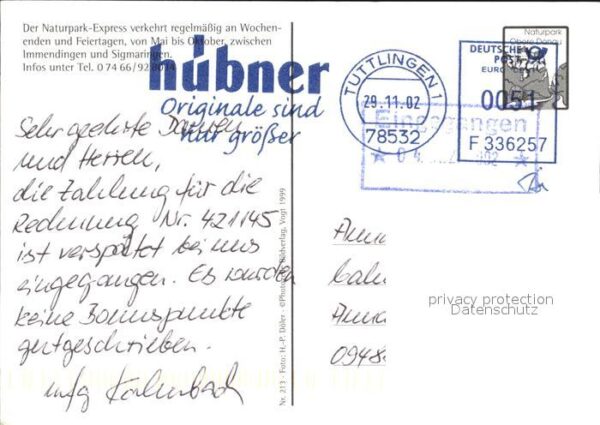 Der Naturpark-Express verkehrt regelmäßig an Wochen-
enden und Feiertagen, von Mai bis Oktober, zwischen
Immendingen und Sigmaringen.
Infos unter Tel. 0 74 66/92
hübner
Originale sind
nur größer
Sehr geehrte Damen
und Herren,
die Zahlung für die
Rechnung Nr. 421145
ist verspätet bei uns
eingegangen. Es wurden
keine Bonuspunkte
gutgeschrieben.
mfg
Nr. 213 - Foto: H.-P. Döler - Vogt 1999
TUTTLINGEN 1
29.11.02
78532
Naturpark
Obere Donau
DEUTSCHE
POST
EURO-CENT
0051
F 336257
Eingegangen
Anna
Anna
0948
privacy protection
Datenschutz